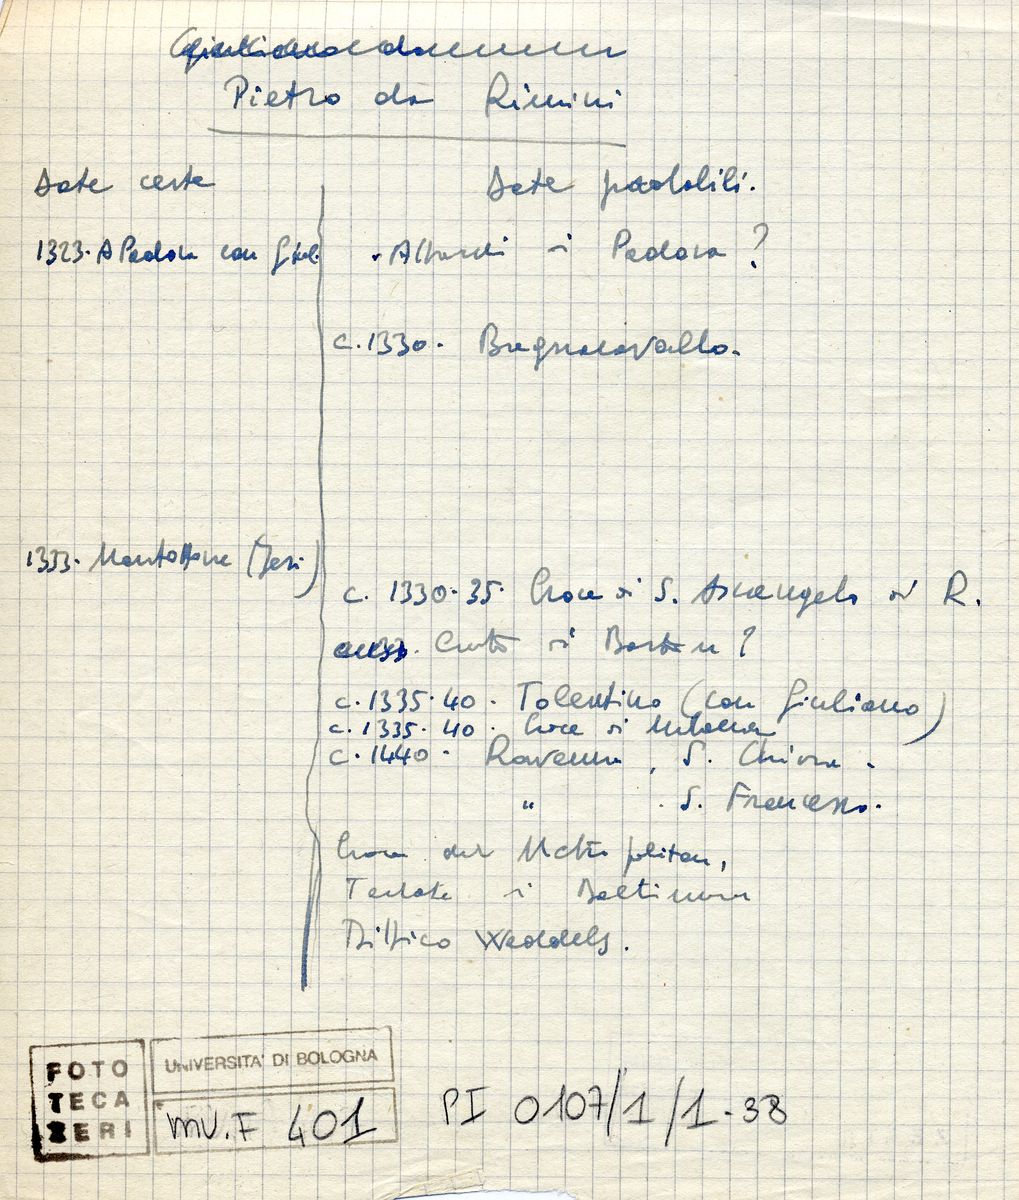 Pietro da Rimini
Date certe
Date probabili.
1323. A Padova con Giul.
Affreschi di Padova?
c. 1330. Bagnacavallo.
1333. Montottone (Jesi)
c. 1330.35. Croce di S. Arcangelo di R.
Cristo di Boston?
c. 1335.40. Tolentino (con Giuliano)
c. 1335.40. Croce di
c. 1440. Ravenna, S. Chiara.
" . S. Francesco.
Croce del Metropolitan,
Testate di Baltimora
Dittico Weddels.
FOTOTECA ZERI
UNIVERSITA' DI BOLOGNA
INV. F 401
PI 0107/1/1-38